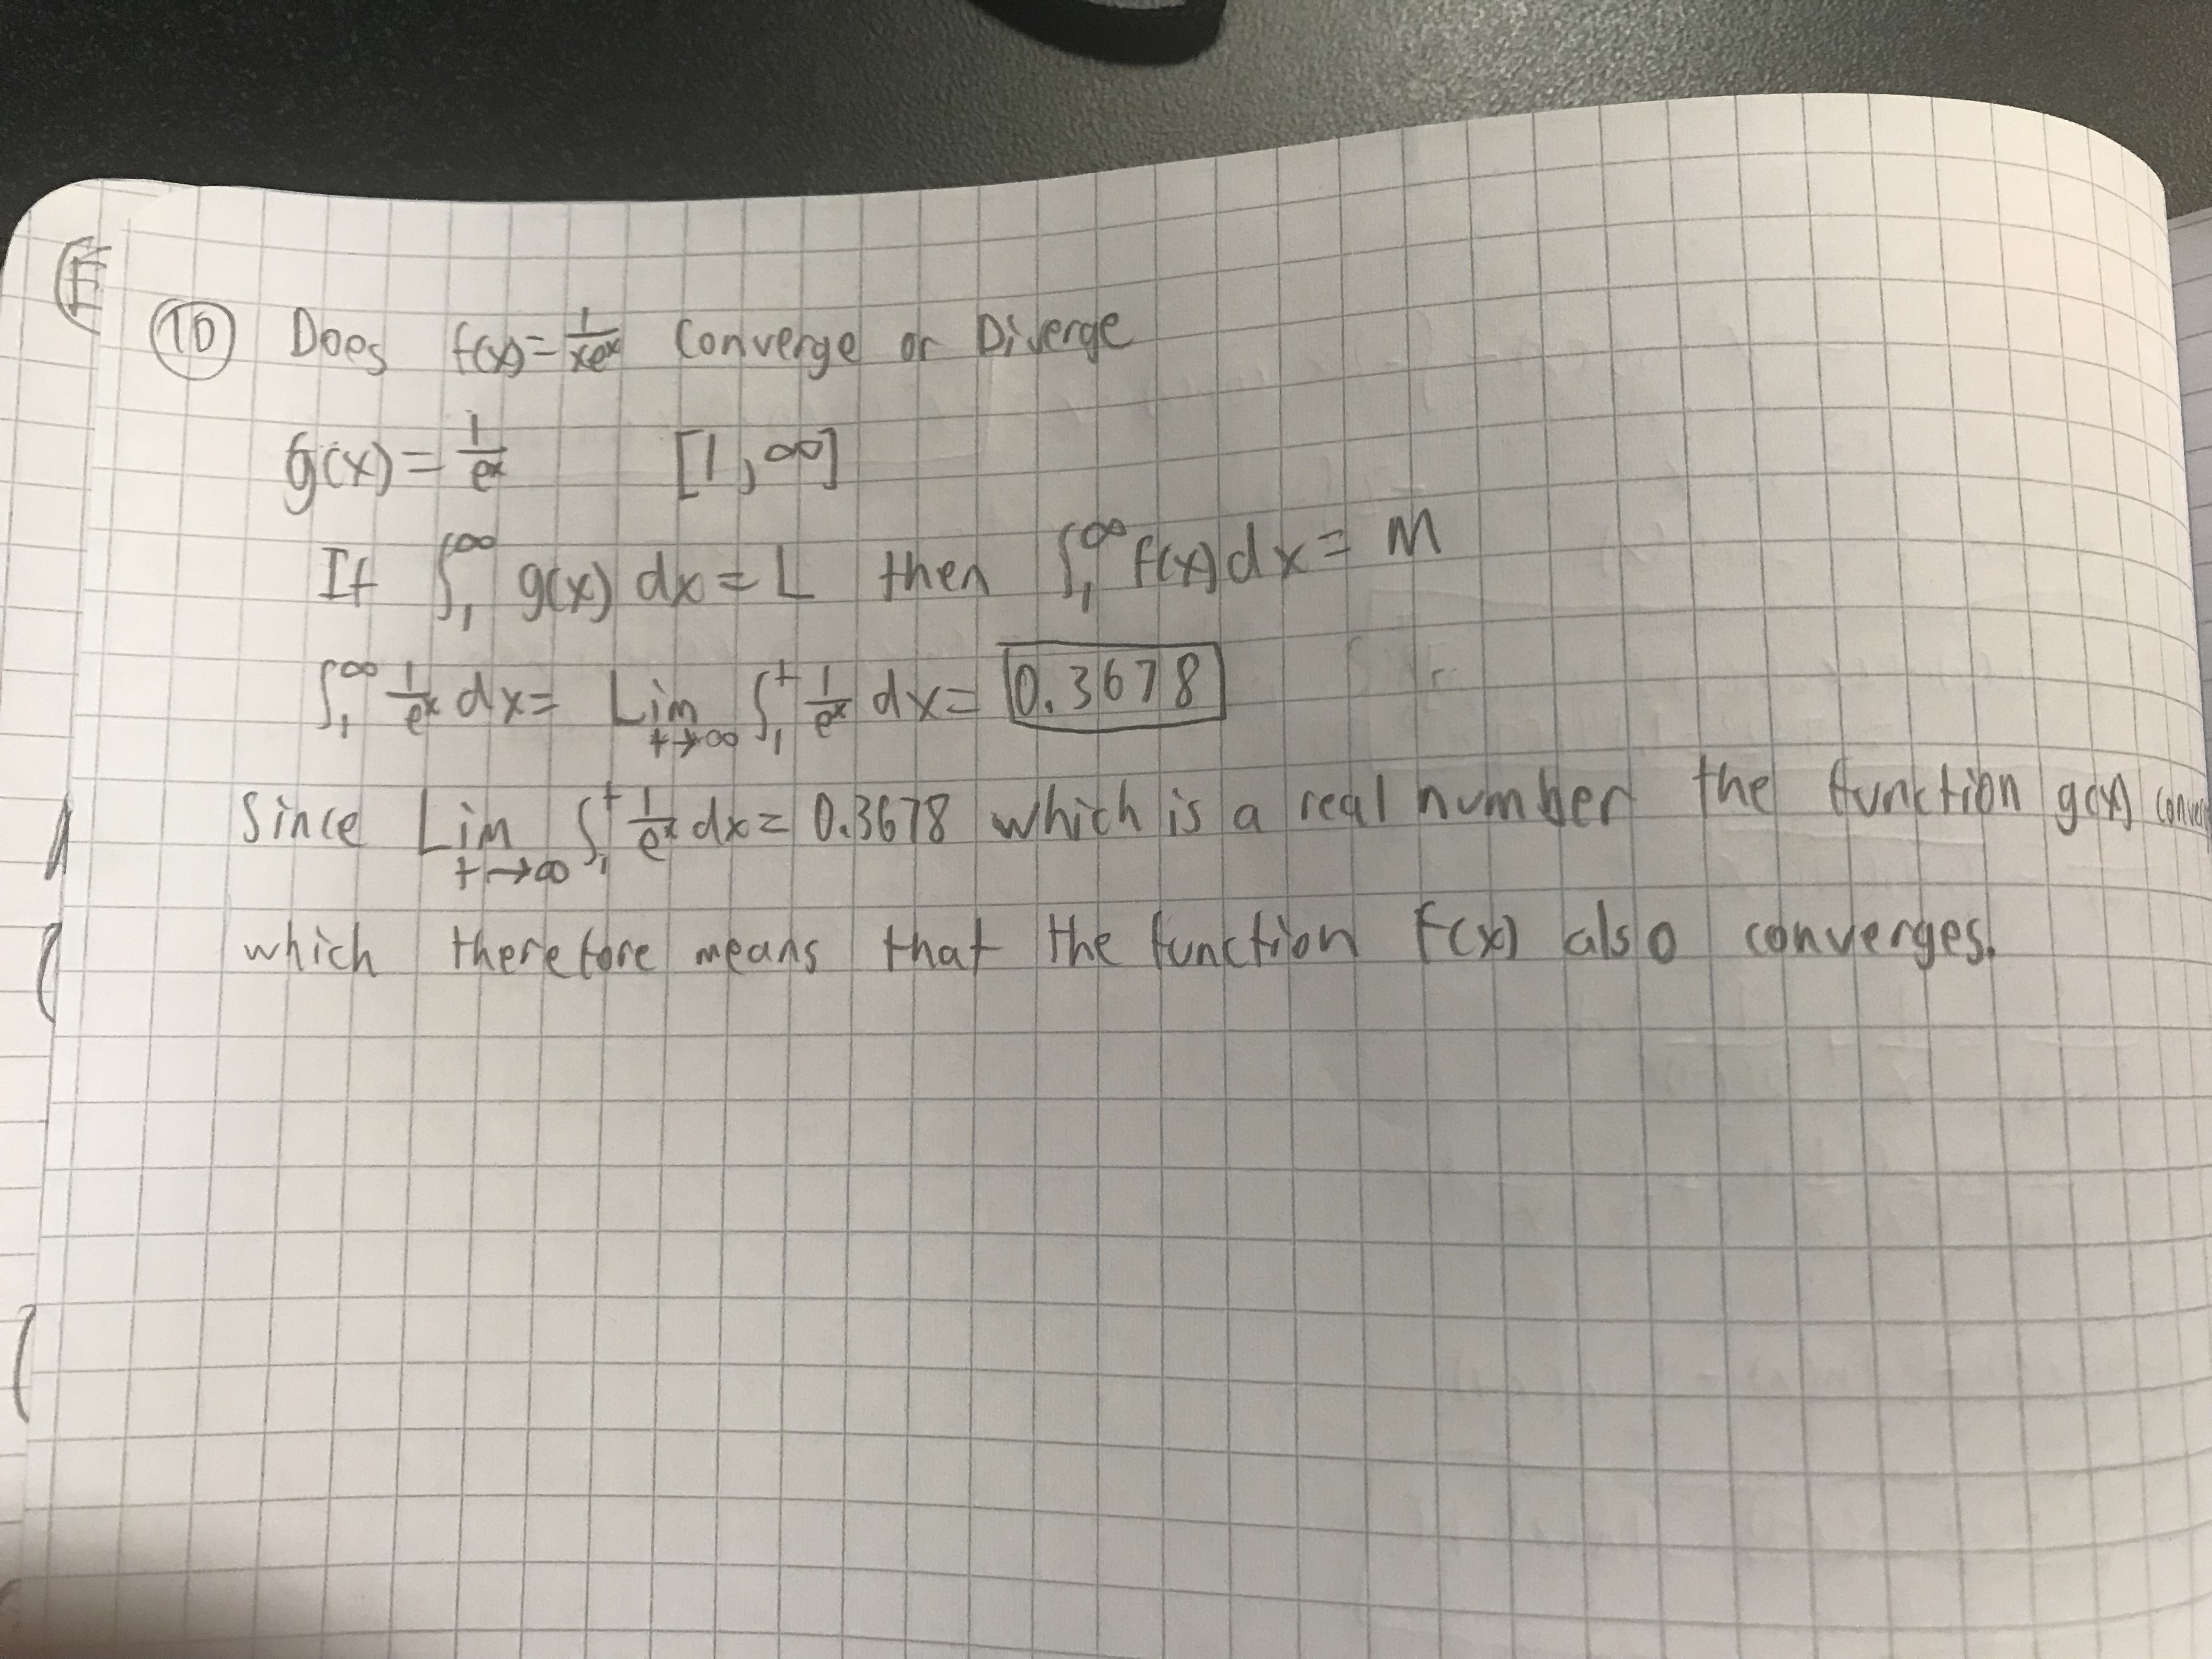 10 Does f(x)=1/xe^x Converge or Diverge
g(x)=1/e^x [1,∞]
If ∫₁^∞ g(x) dx = L then ∫₁^∞ f(x)dx = M
∫₁^∞ 1/e^x dx = Lim t→∞ ∫₁^t 1/e^x dx = 0.3678
Since Lim t→∞ ∫₁^t 1/e^x dx = 0.3678 which is a real number the function g(x) conver
which therefore means that the function f(x) also converges.